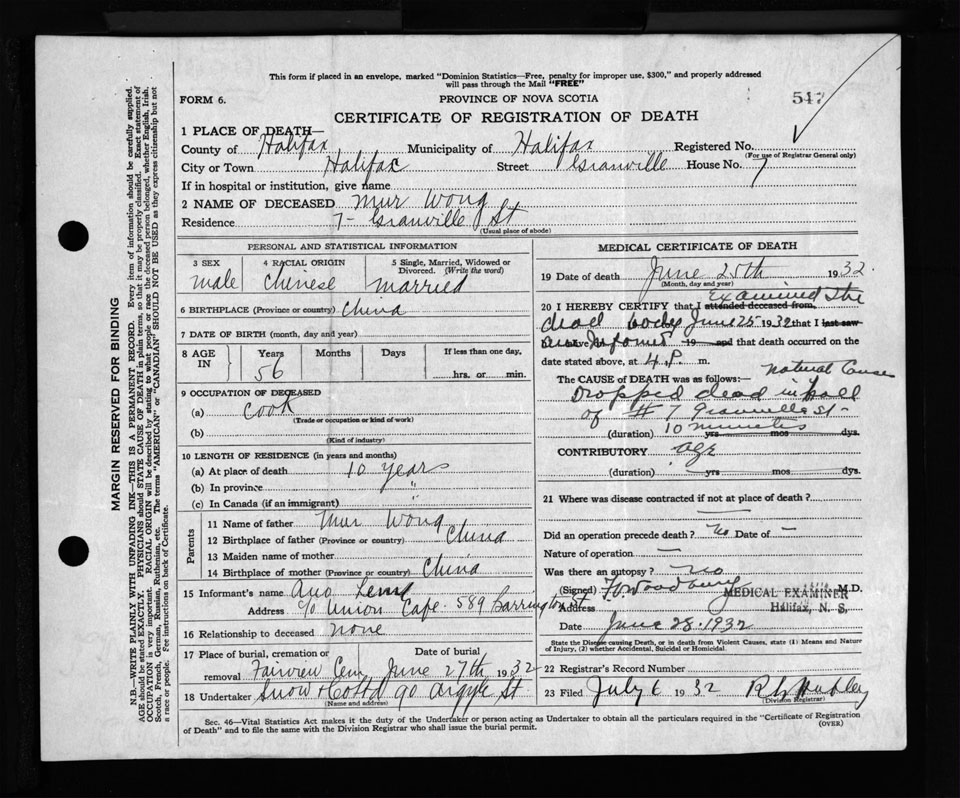 This form if placed in an envelope, marked "Dominion Statistics—Free, penalty for improper use, $300," and properly addressed
will pass through the Mail "FREE"
FORM 6.
PROVINCE OF NOVA SCOTIA
547
CERTIFICATE OF REGISTRATION OF DEATH
1 PLACE OF DEATH—
County of Halifax Municipality of Halifax Registered No.
(For use of Registrar General only)
City or Town Halifax Street Granville House No. 7
If in hospital or institution, give name
2 NAME OF DECEASED Mur Wong
Residence 7- Granville St
(Usual place of abode)
PERSONAL AND STATISTICAL INFORMATION
3 SEX 4 RACIAL ORIGIN 5 Single, Married, Widowed or
Divorced. (Write the word)
male Chinese married
6 BIRTHPLACE (Province or country) China
7 DATE OF BIRTH (month, day and year)
8 AGE IN Years Months Days If less than one day,
56 hrs. or min.
9 OCCUPATION OF DECEASED
(a) Cook
(Trade or occupation or kind of work)
(b)
(Kind of industry)
10 LENGTH OF RESIDENCE (in years and months)
(a) At place of death 10 years
(b) In province "
(c) In Canada (if an immigrant) "
Parents
11 Name of father Mur Wong
12 Birthplace of father (Province or country) China
13 Maiden name of mother
14 Birthplace of mother (Province or country) China
15 Informant's name
Address c/o Union Cafe 589 Barrington St
16 Relationship to deceased none
17 Place of burial, cremation or Date of burial
removal Fairview Cem June 27th 1932
18 Undertaker Snow & Co Ltd 90 Argyle St
(Name and address)
MEDICAL CERTIFICATE OF DEATH
19 Date of death June 25th 1932.
(Month, day and year)
20 I HEREBY CERTIFY that I attended deceased from Examined the
dead body June 25 1932 that I last saw
19 and that death occurred on the
date stated above, at 4 P. m.
The CAUSE OF DEATH was as follows:— natural Cause
Dropped dead in hall
of # 7 Granville St-
(duration) 10 minutes yrs mos dys.
CONTRIBUTORY age
(duration) yrs mos dys.
21 Where was disease contracted if not at place of death?
Did an operation precede death? No Date of —
Nature of operation —
Was there an autopsy? no
(Signed) Woodbury M.D.
MEDICAL EXAMINER
Address Halifax, N. S.
Date June 28. 1932
State the Disease causing Death, or in death from Violent Causes, state (1) Means and Nature
of Injury, (2) whether Accidental, Suicidal or Homicidal.
22 Registrar's Record Number
23 Filed July 6 1932
(Division Registrar)
Sec. 46—Vital Statistics Act makes it the duty of the Undertaker or person acting as Undertaker to obtain all the particulars required in the "Certificate of Registration
of Death" and to file the same with the Division Registrar who shall issue the burial permit.
(OVER)
MARGIN RESERVED FOR BINDING
N.B.—WRITE PLAINLY WITH UNFADING INK—THIS IS A PERMANENT RECORD. Every item of information should be carefully supplied.
AGE should be stated EXACTLY. PHYSICIANS should STATE CAUSE OF DEATH in plain terms, so that it may be properly classified. Exact statement of
OCCUPATION is very important. RACIAL ORIGIN will be described by stating to what people or race the deceased person belonged, whether English, Irish,
Scotch, French, German, Russian, Ruthenian, etc. The terms "AMERICAN" or "CANADIAN" SHOULD NOT BE USED as they express citizenship but not
a race or people. Fee instructions on back of Certificate.